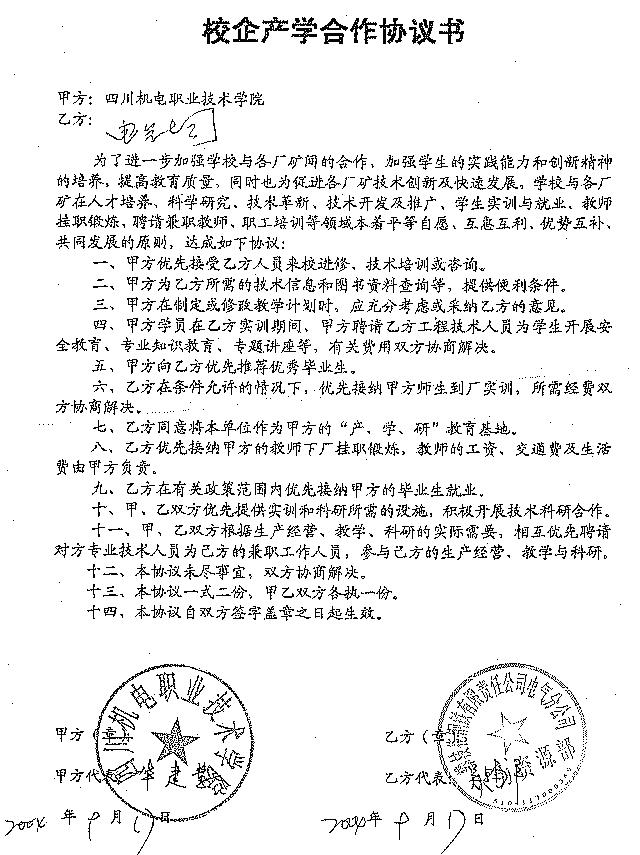 校企产学合作协议书
甲方：四川机电职业技术学院
乙方：
为了进一步加强学校与各厂矿间的合作、加强学生的实践能力和创新精神
的培养，提高教育质量，同时也为促进各厂矿技术创新及快速发展。学校与各厂
矿在人才培养、科学研究、技术革新、技术开发及推广、学生实训与就业、教师
挂职锻炼、聘请兼职教师、职工培训等领域本着平等自愿、互惠互利、优势互补、
共同发展的原则，达成如下协议：
一、甲方优先接受乙方人员来校进修、技术培训或咨询。
二、甲方为乙方所需的技术信息和图书资料查询等，提供便利条件。
三、甲方在制定或修改教学计划时，应充分考虑或采纳乙方的意见。
四、甲方学员在乙方实训期间、甲方聘请乙方工程技术人员为学生开展安
全教育、专业知识教育、专题讲座等，有关费用双方协商解决。
五、甲方向乙方优先推荐优秀毕业生。
六、乙方在条件允许的情况下，优先接纳甲方师生到厂实训，所需经费双
方协商解决。
七、乙方同意将本单位作为甲方的“产、学、研”教育基地。
八、乙方优先接纳甲方的教师下厂挂职锻炼，教师的工资、交通费及生活
费由甲方负责。
九、乙方在有关政策范围内优先接纳甲方的毕业生就业。
十、甲、乙双方优先提供实训和科研所需的设施，积极开展技术科研合作。
十一、甲、乙双方根据生产经营、教学、科研的实际需要，相互优先聘请
对方专业技术人员为己方的兼职工作人员，参与己方的生产经营、教学与科研。
十二、本协议未尽事宜，双方协商解决。
十三、本协议一式二份，甲乙双方各执一份。
十四、本协议自双方签字盖章之日起生效。
四川机电职业技术学院
有限责任公司电气分公司
资源部
甲方（章） 乙方（章）
甲方代表 乙方代表
年9月17日 年9月17日